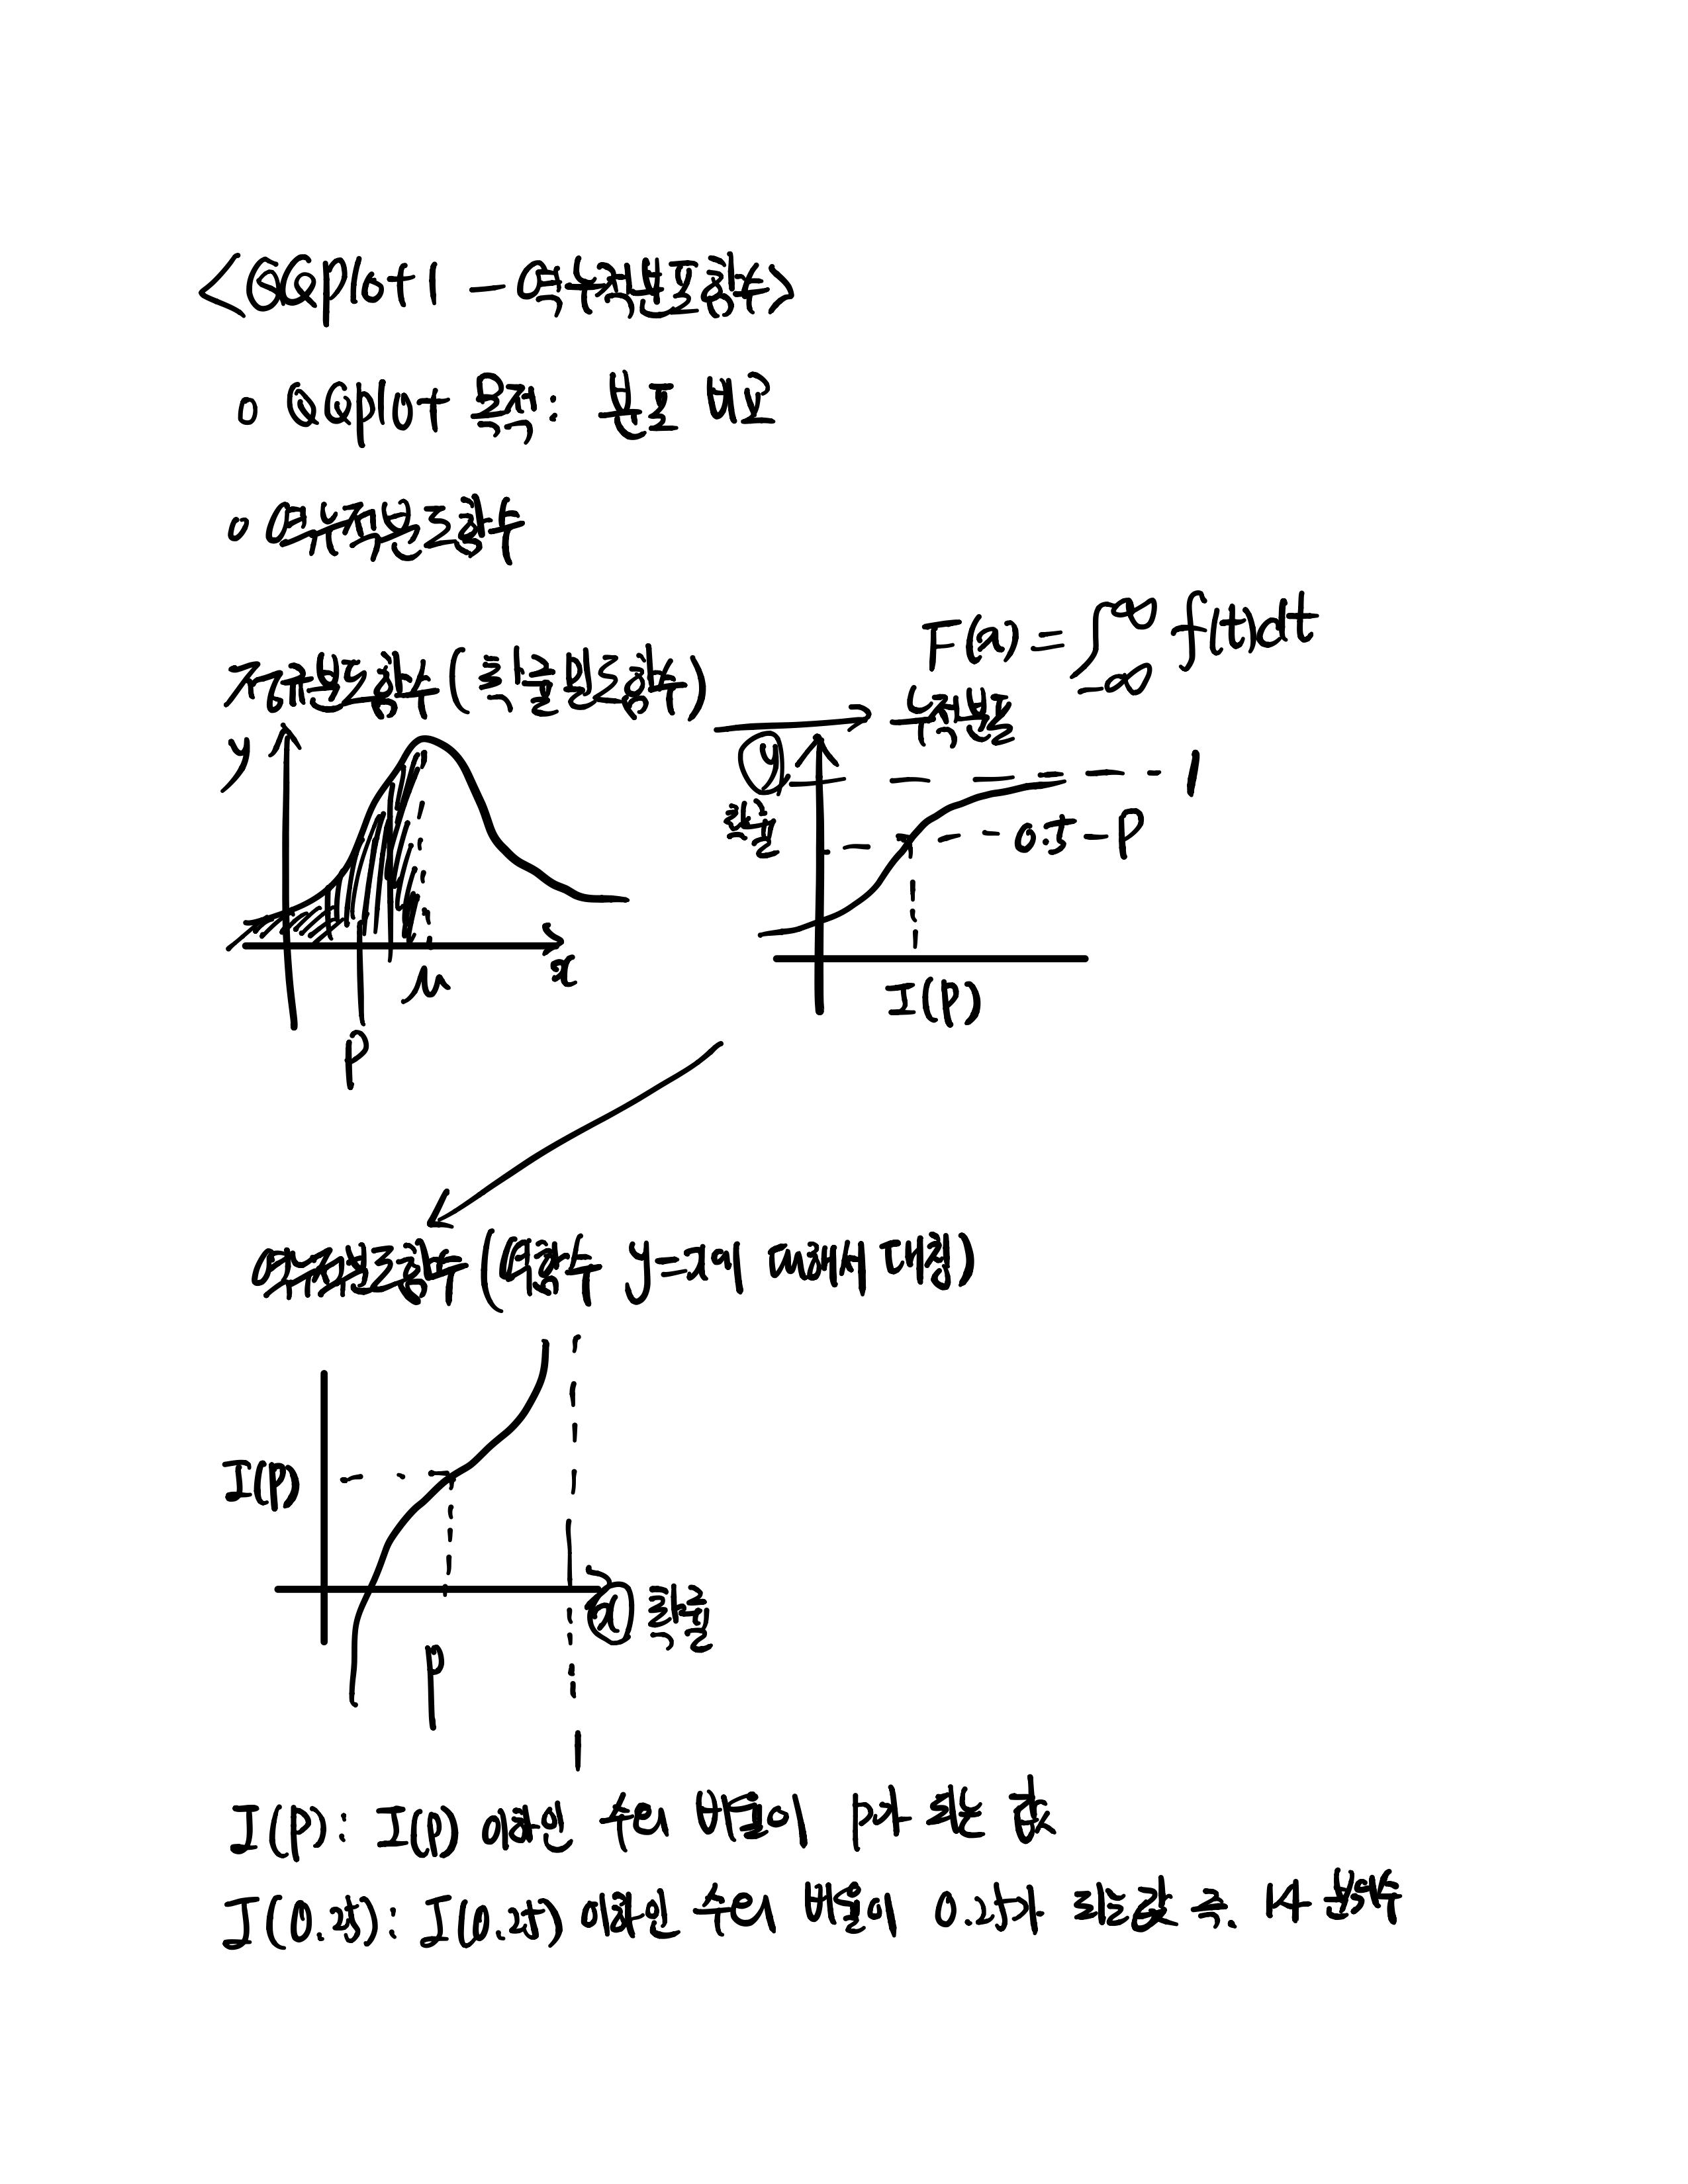 <QQplot 1 - 역누적분포함수>
o QQplot 목적: 분포 비교
o 역누적분포함수
F(x) = ∫_{-∞}^{∞} f(t)dt
정규분포함수 (확률밀도함수)
누적분포
y
y
확률
1
0.5 - P
μ
x
I(P)
P
역누적분포함수 (역함수 y=x에 대해서 대칭)
I(P)
x 확률
P
1
I(P): I(P) 이하인 수의 비율이 P가 되는 값
I(0.25): I(0.25) 이하인 수의 비율이 0.25가 되는 값 즉. 1/4 분위수